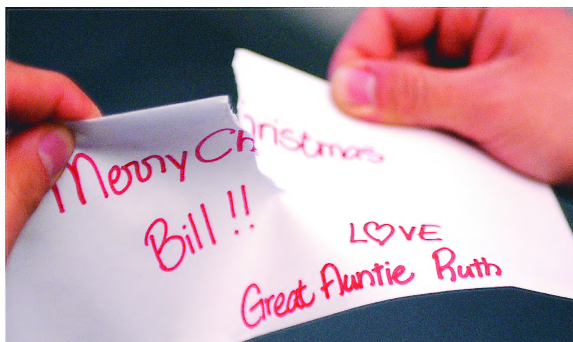 Merry Christmas
Bill!!
LOVE
Great Auntie Ruth